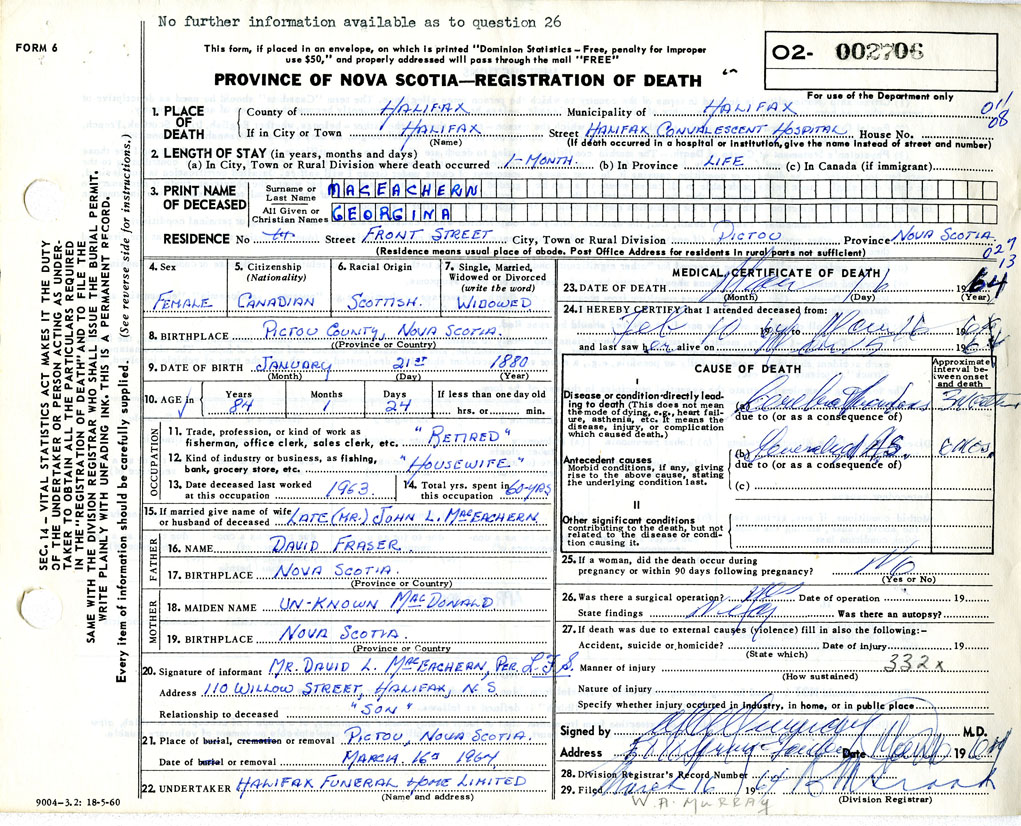 No further information available as to question 26
FORM 6
This form, if placed in an envelope, on which is printed "Dominion Statistics – Free, penalty for improper
use $50," and properly addressed will pass through the mail "FREE"
PROVINCE OF NOVA SCOTIA—REGISTRATION OF DEATH
O2- 002706
For use of the Department only
011
08
1. PLACE OF DEATH
County of HALIFAX Municipality of HALIFAX
If in City or Town HALIFAX Street HALIFAX CONVALESCENT HOSPITAL House No.
(Name) (If death occurred in a hospital or institution, give the name instead of street and number)
2. LENGTH OF STAY (in years, months and days)
(a) In City, Town or Rural Division where death occurred 1-MONTH. (b) In Province LIFE (c) In Canada (if immigrant)
3. PRINT NAME OF DECEASED
Surname or Last Name MACEACHERN
All Given or Christian Names GEORGINA
RESIDENCE No Street FRONT STREET City, Town or Rural Division PICTOU Province NOVA SCOTIA
(Residence means usual place of abode. Post Office Address for residents in rural parts not sufficient)
027
13
4. Sex FEMALE
5. Citizenship (Nationality) CANADIAN
6. Racial Origin SCOTTISH.
7. Single, Married, Widowed or Divorced (write the word) WIDOWED
8. BIRTHPLACE PICTOU COUNTY, NOVA SCOTIA.
(Province or Country)
9. DATE OF BIRTH JANUARY 21ST 1880
(Month) (Day) (Year)
10. AGE in Years 84 Months 1 Days 24 If less than one day old hrs. or min.
OCCUPATION
11. Trade, profession, or kind of work as fisherman, office clerk, sales clerk, etc. "RETIRED"
12. Kind of industry or business, as fishing, bank, grocery store, etc. "HOUSEWIFE"
13. Date deceased last worked at this occupation 1963. 14. Total yrs. spent in this occupation 60-YRS
15. If married give name of wife or husband of deceased LATE (MR.) JOHN L. MACEACHERN
FATHER
16. NAME DAVID FRASER.
17. BIRTHPLACE NOVA SCOTIA.
(Province or Country)
MOTHER
18. MAIDEN NAME UN-KNOWN MACDONALD
19. BIRTHPLACE NOVA SCOTIA.
(Province or Country)
20. Signature of informant MR. DAVID L. MACEACHERN, PER. L.F.S.
Address 110 WILLOW STREET, HALIFAX, N.S
Relationship to deceased "SON"
21. Place of burial, cremation or removal PICTOU, NOVA SCOTIA.
Date of burial or removal MARCH. 16TH 1964
22. UNDERTAKER HALIFAX FUNERAL HOME LIMITED
(Name and address)
9004–3.2: 18-5-60
MEDICAL CERTIFICATE OF DEATH
23. DATE OF DEATH Mar 16 1964
(Month) (Day) (Year)
24. I HEREBY CERTIFY that I attended deceased from:
Feb 10 1964 to Mar 16 1964
and last saw her alive on 19
CAUSE OF DEATH
Approximate interval between onset and death
I
Disease or condition directly leading to death (This does not mean the mode of dying, e.g., heart failure, asthenia, etc. It means the disease, injury, or complication which caused death.)
(a)
due to (or as a consequence of)
Antecedent causes
Morbid conditions, if any, giving rise to the above cause, stating the underlying condition last.
(b) Generalized A.S.
due to (or as a consequence of)
(c)
II
Other significant conditions contributing to the death, but not related to the disease or condition causing it.
25. If a woman, did the death occur during pregnancy or within 90 days following pregnancy? No
(Yes or No)
26. Was there a surgical operation? yes Date of operation 19
State findings Was there an autopsy?
27. If death was due to external causes (violence) fill in also the following:–
Accident, suicide or homicide? Date of injury 19
(State which)
Manner of injury 332x
(How sustained)
Nature of injury
Specify whether injury occurred in industry, in home, or in public place
Signed by M.D.
Address Date 1964
28. Division Registrar's Record Number
29. Filed March 16 1964
(Division Registrar)
W.A. MURRAY
SEC. 14 – VITAL STATISTICS ACT MAKES IT THE DUTY
OF THE UNDERTAKER OR PERSON ACTING AS UNDER-
TAKER TO OBTAIN ALL THE PARTICULARS REQUIRED
IN THE "REGISTRATION OF DEATH" AND TO FILE THE
SAME WITH THE DIVISION REGISTRAR WHO SHALL ISSUE THE BURIAL PERMIT.
WRITE PLAINLY WITH UNFADING INK. THIS IS A PERMANENT RECORD.
Every item of information should be carefully supplied. (See reverse side for instructions.)